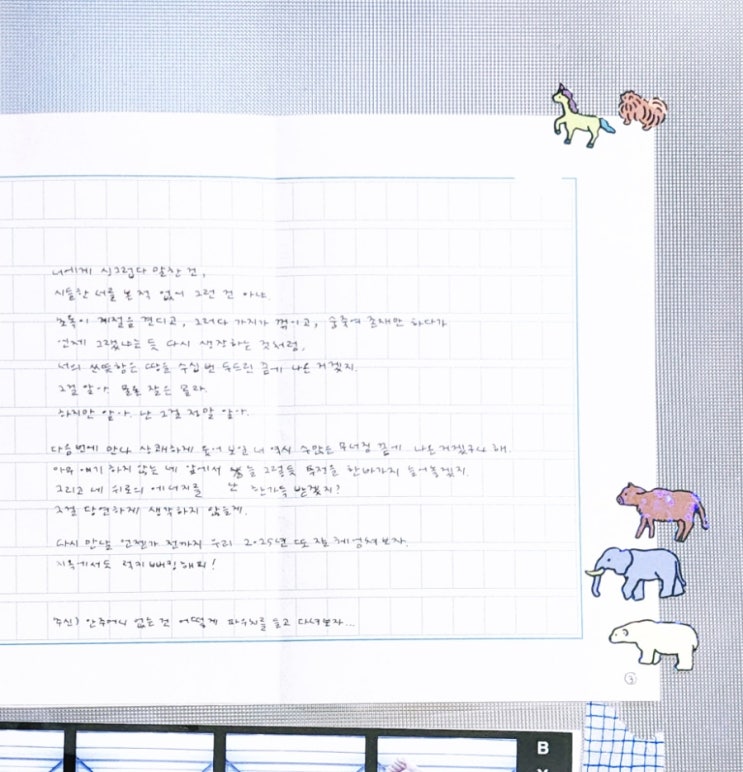 너에게 시끄럽다 말한 건,
시들한 너를 본 적 없어 그런 건 아냐.
초록이 계절을 견디고, 그러다 가지가 꺾이고, 숨죽여 존재만 하다가
언제 그랬냐는 듯 다시 생장하는 것처럼,
너의 산뜻함은 땅을 수십 번 두드린 끝에 나온 거겠지.
그걸 알아. 물론 잘은 몰라.
하지만 알아. 난 그걸 정말 알아.
다음번에 만나 상쾌하게 웃어 보일 너 역시 수많은 무너짐 끝에 나온 거겠구나 해.
아무 얘기 하지 않는 네 앞에서 늘 그렇듯 투정을 한바가지 늘어놓겠지.
그리고 네 위로의 에너지를 난 한가득 받겠지?
그걸 당연하게 생각하지 않을게.
다시 만날 언젠가 전까지 우리 2025년 또 잘 헤엄쳐보자.
지옥에서도 럭키 해피!
추신) 안주머니 없는 건 어떻게 파우치를 들고 다녀보자...
3
B